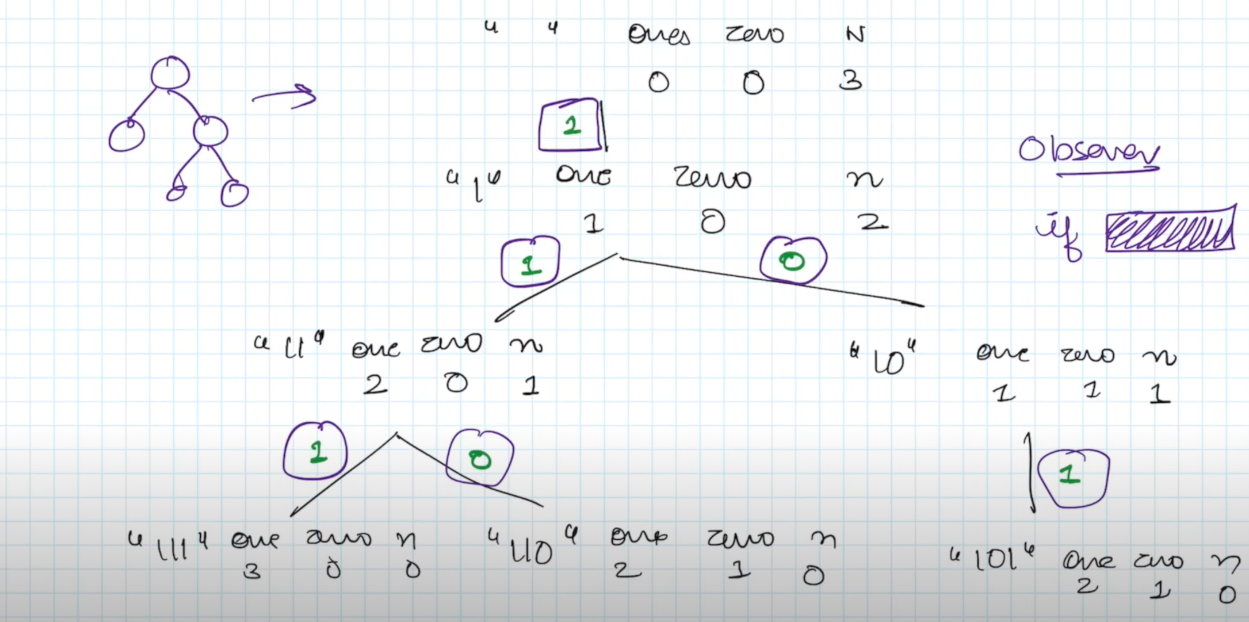 " " Ones zero N
0 0 3
1
"1" one zero n
1 0 2
Observe
if
1 0
"11" one zero n
2 0 1
"10" one zero n
1 1 1
1 0
1
"111" one zero n
3 0 0
"110" one zero n
2 1 0
"101" one zero n
2 1 0